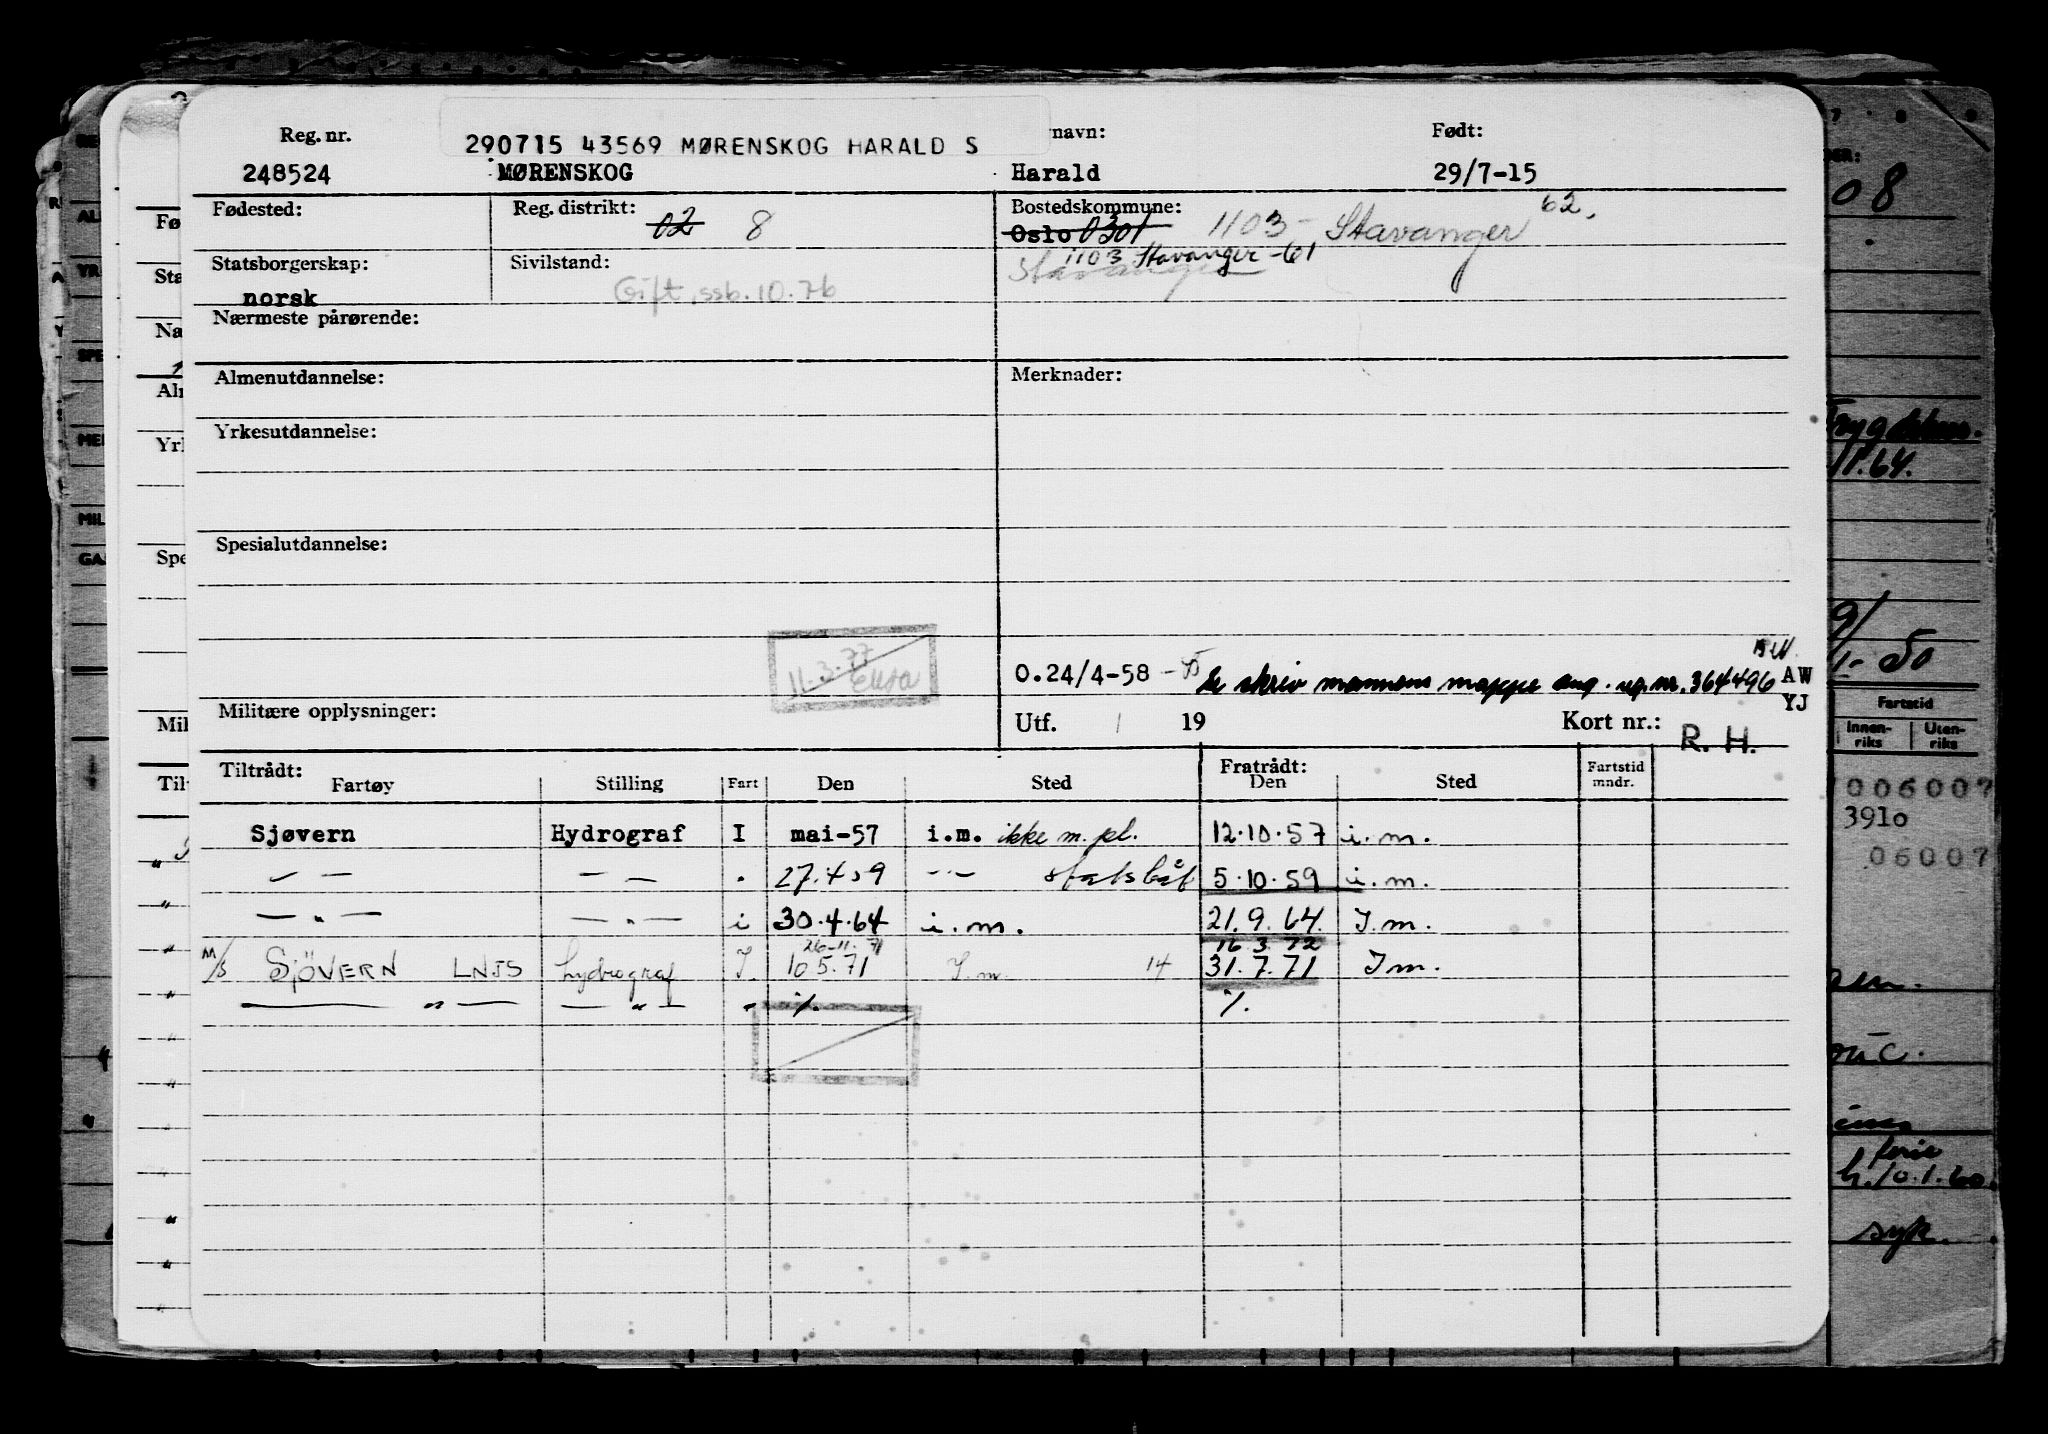 Reg. nr. navn: Født:
290715 43569 MØRENSKOG HARALD S
248524 MØRENSKOG Harald 29/7-15
Fødested: Reg. distrikt: 02 8 Bostedskommune: 62.
Oslo 0301 1103 - Stavanger
Statsborgerskap: Sivilstand: Stavanger 1103 Stavanger -61
norsk Gift, ssb. 10.76
Nærmeste pårørende:
Almenutdannelse: Merknader:
Yrkesutdannelse:
Spesialutdannelse:
11.3.77
O.24/4-58 Se skriv mannens mappe ang. reg.nr. 364496 AW
YJ
Militære opplysninger: Utf. 19 Kort nr.: R. H.
Tiltrådt: Fratrådt: Fartstid
Fartøy Stilling Fart Den Sted Den Sted mndr.
Sjøvern Hydrograf I mai-57 i.m. ikke m. pl. 12.10.57 i.m.
— — — — " 27.4 59 -"- statsbåt 5.10.59 i.m.
— " — — " — i 30.4.64 i.m. 21.9.64. I.m.
26-11.71 16.3.72
M/S SJÖVERN LNJS hydrograf I. 10 5.71 I.m. 14 31.7.71 I m.
— " — — " — " %. %.
Fø
Sta
Na
Alr
Yrk
Spe
Mil
Til
08
1.64.
50
Fartstid
Innen-
riks
Uten-
riks
006007
3910
06007
ferie
10.1.60.
syk.